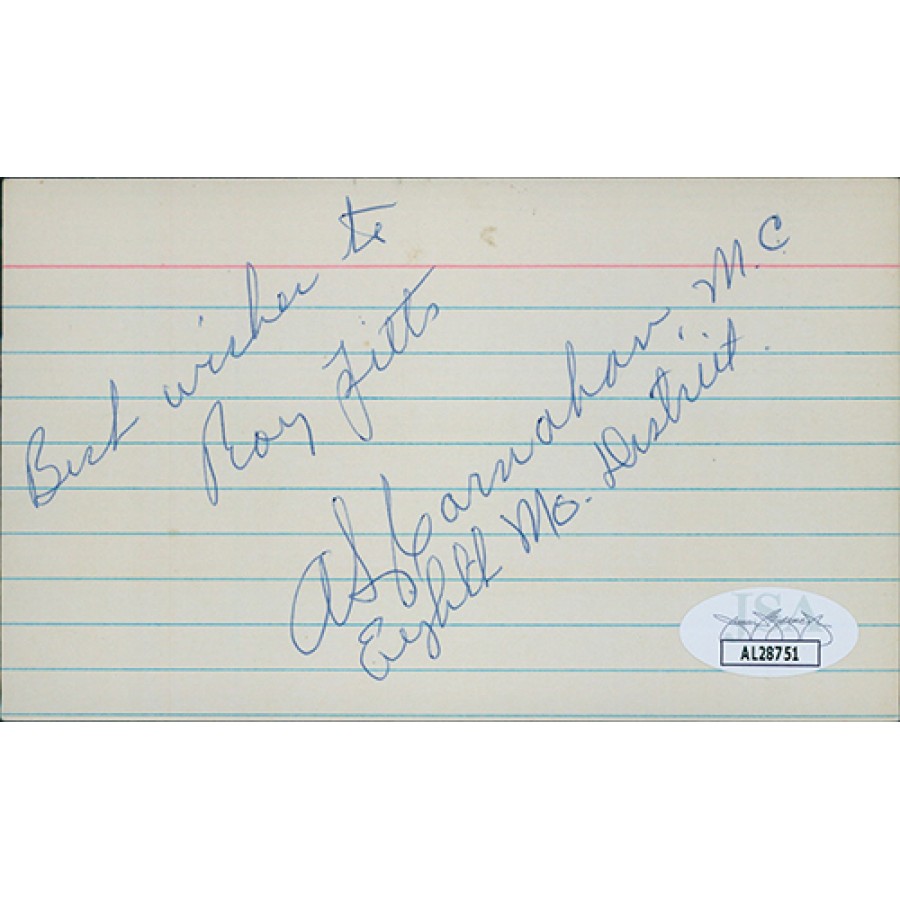 Best wishes to
Roy Fitts
A S J Carnahan, M.C
Eighth Mo. District.
JSA
AL28751